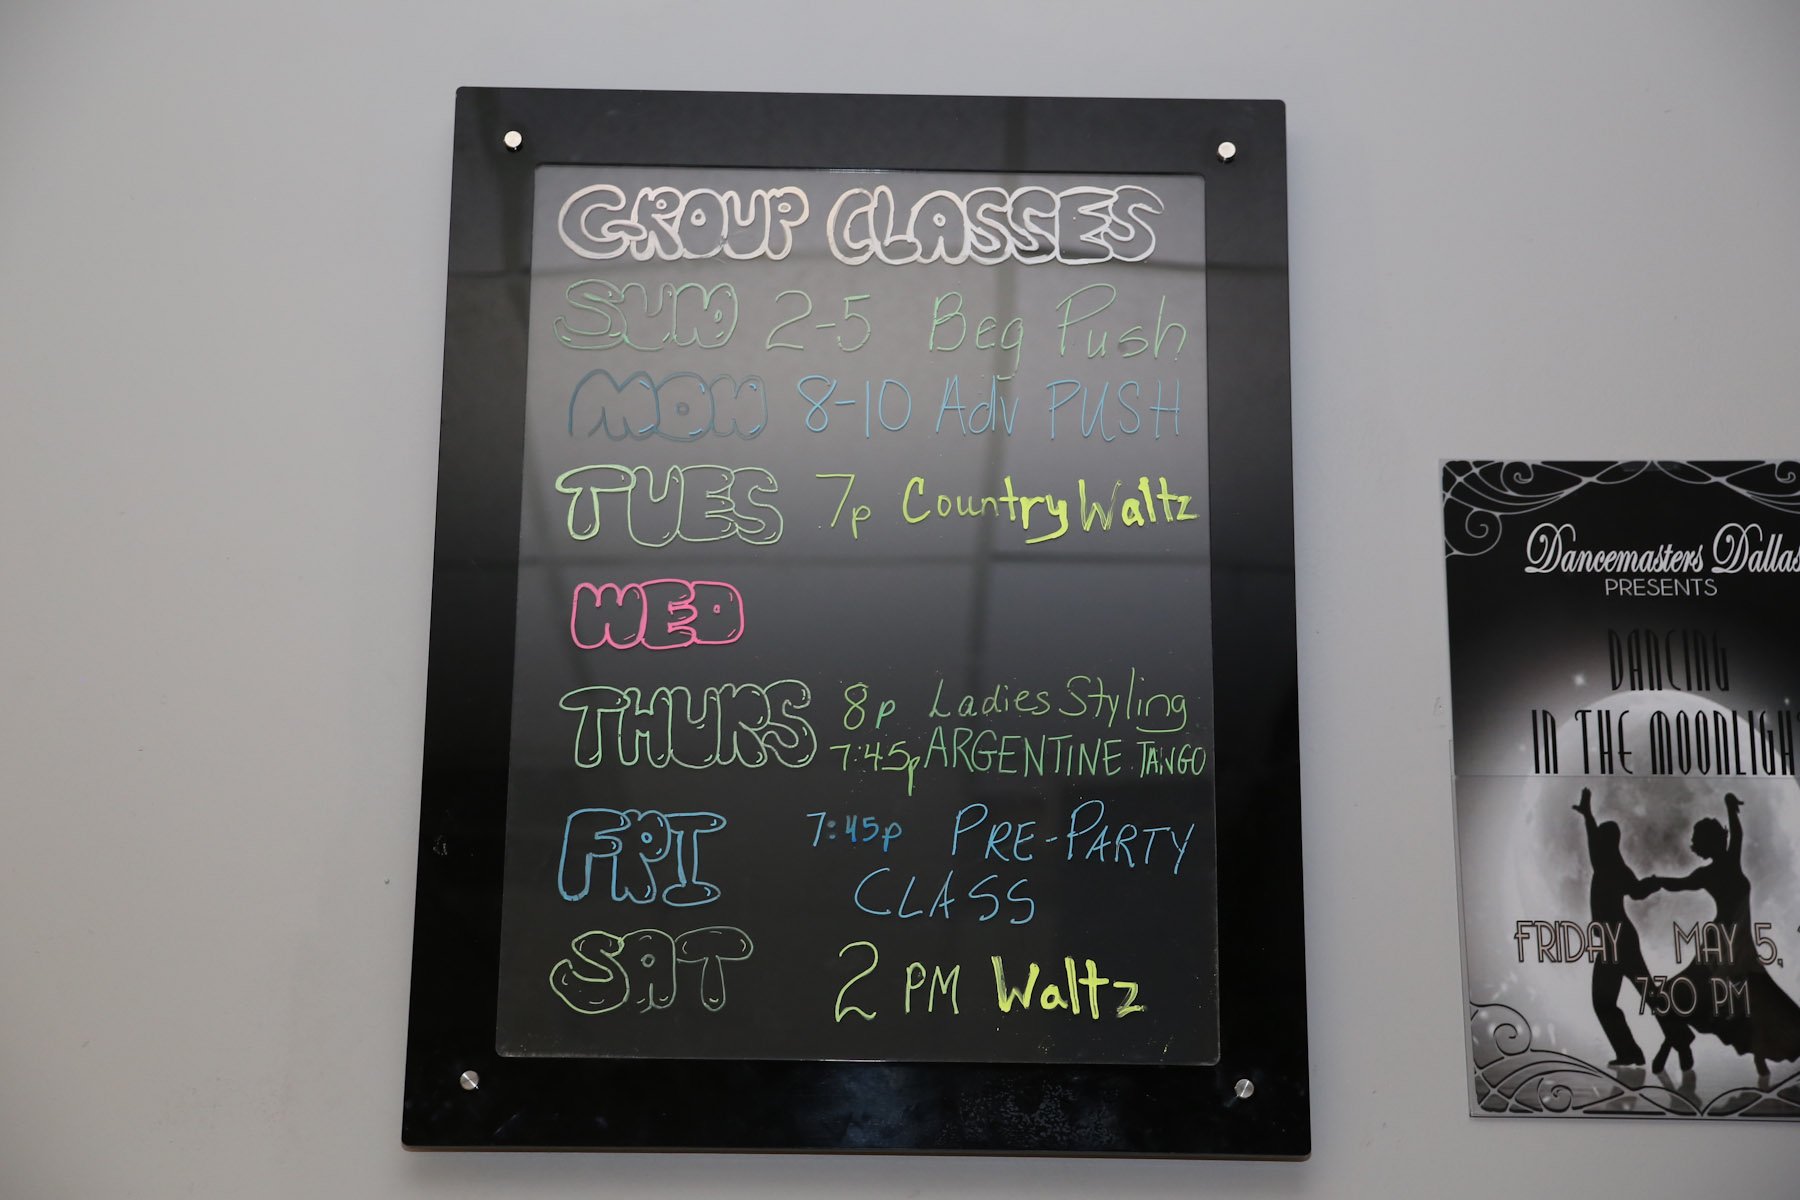 GROUP CLASSES
SUN 2-5 Beg Push
MON 8-10 Adv PUSH
TUES 7p Country Waltz
WED
THURS 8p Ladies Styling
7:45p ARGENTINE TANGO
FRI 7:45p PRE-PARTY
CLASS
SAT 2 PM Waltz
Dancemasters Dallas
PRESENTS
DANCING
IN THE MOONLIGHT
FRIDAY MAY 5,
7:30 PM